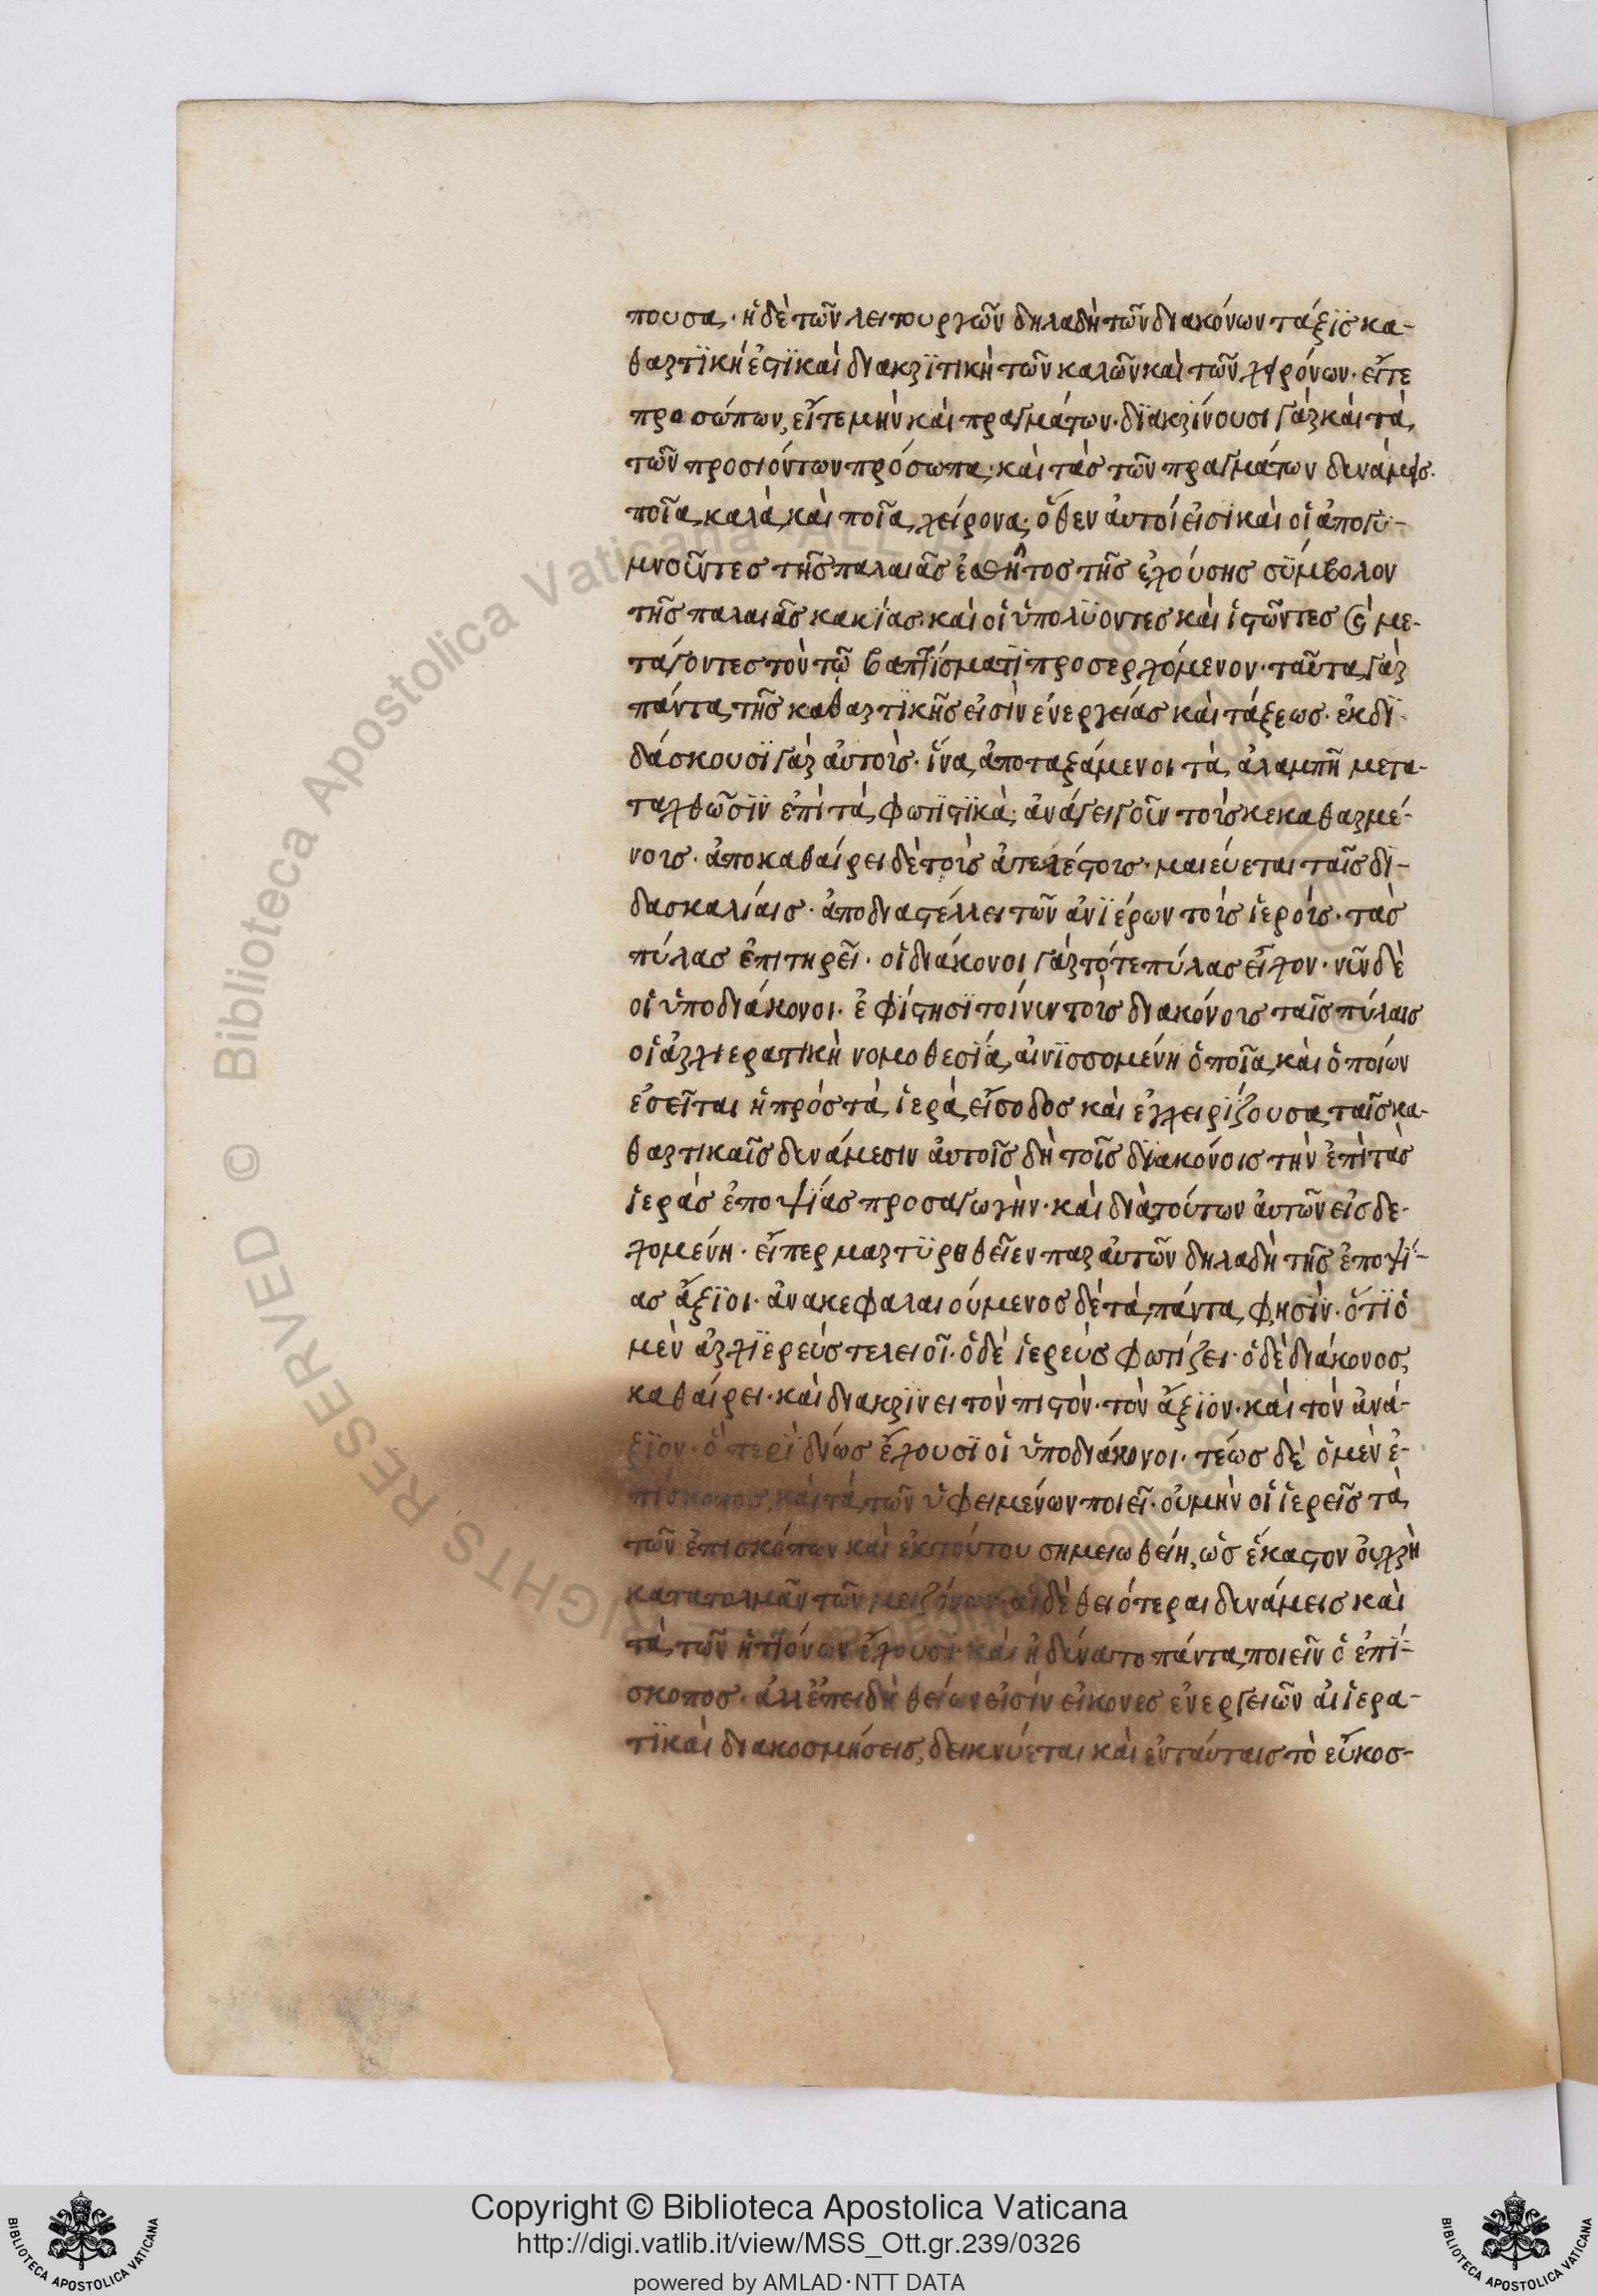 πουσα· ἡ δὲ τῶν λειτουργῶν δηλαδὴ τῶν διακόνων τάξϊς κα-
θαρτϊκή ἐστϊ καὶ διακρϊτικὴ τῶν καλῶν καὶ τῶν χειρόνων· εἴτε
προσώπων, εἴτε μὴν καὶ πραγμάτων· δϊακρίνουσι γὰρ καὶ τὰ
τῶν προσιόντων πρόσωπα· καὶ τὰς τῶν πραγμάτων δυνάμεις·
ποῖα καλὰ, καὶ ποῖα χείρονα· ὅθεν αὐτοί εἰσι καὶ οἱ ἀπογϋ-
μνοῦντες τῆς παλαιᾶς ἐσθῆτος τῆς ἐχούσης σύμβολον
τῆς παλαιᾶς κακίας· καὶ οἱ ὑπολύοντες καὶ ἱστῶντες καὶ με-
τάγοντες τὸν τῷ βαπτίσματϊ προσερχόμενον· ταῦτα γὰρ
πάντα τῆς καθαρτϊκῆς εἰσὶν ἐνεργείας καὶ τάξεως· ἐκδϊ-
δάσκουσϊ γὰρ αὐτοὶς· ἵνα ἀποταξάμενοι τὰ ἀλαμπῆ μετα-
ταχθῶσϊν ἐπὶ τὰ φωτϊστϊκὰ· ἀνάγει γοῦν τοὶς κεκαθαρμέ-
νοις· ἀποκαθαίρει δὲ τοὶς ἀτελέστοις· μαιεύεται ταῖς δϊ-
δασκαλίαις· ἀποδιαστέλλει τῶν ἀνϊέρων τοὶς ἱεροίς· τὰς
πύλας ἐπιτηρεῖ· οἱ διάκονοι γὰρ τότε πύλας εἶχον· νῦν δὲ
οἱ ὑποδιάκονοι· ἐφίστησϊ τοίνυν τοὶς διακόνοις ταῖς πύλαις
οἱ ἀρχιερατικὴ νομοθεσία, αἰνϊσσομένη ὁποῖα καὶ ὁποίων
ἐσεῖται ἡ πρὸς τὰ ἱερὰ εἴσοδος καὶ ἐγχειρίζουσα ταῖς κα-
θαρτικαῖς δυνάμεσιν αὐτοῖς δὴ τοῖς δϊακόνοις τὴν ἐπὶ τὰς
ἱεράς ἐποψίας προσαγωγὴν· καὶ διὰ τούτων αὐτῶν εἰσδε-
χομένη· εἴπερ μαρτϋρηθεῖεν παρ αὐτῶν δηλαδὴ τῆς ἐποψί-
ας ἄξϊοι· ἀνακεφαλαιούμενος δὲ τὰ πάντα, φησὶν· ὅτϊ ὁ
μὲν ἀρχϊερεύς τελειοῖ· ὁ δὲ ἱερεὺς φωτίζει· ὁ δὲ διάκονος,
καθαίρει· καὶ διακρϊνει τὸν πιστόν· τὸν ἄξϊον· καὶ τὸν ἀνά-
ξϊον· ὁ περϊ δνίως ἔχουσϊ οἱ ὑποδιάκονοι· τέως δὲ ὁ μὲν ἐ-
πίσκοπος, καὶ τὰ τῶν ὑφειμένων ποιεῖ· οὐ μὴν οἱ ἱερεῖς τὰ
τῶν ἐπισκόπων καὶ ἐκ τούτου σημειωθείη, ὡς ἕκαστον οὐ χρὴ
κατατολμᾶν τῶν μειζόνων· αἱ δὲ θειότεραι δυνάμεις καὶ
τὰ τῶν ἡττόνων ἔχουσϊ· καὶ ἠδύνατο πάντα ποιεῖν ὁ ἐπί-
σκοπος· ἀλλ ἐπειδὴ θείων εἰσίν εἰκονες ἐνεργειῶν αἱ ἱερα-
τϊκὰι διακοσμήσεις, δεικνύεται καὶ ἐν ταύταις τὸ εὔκοσ-
© Biblioteca Apostolica Vaticana ALL RIGHTS RESERVED
Copyright © Biblioteca Apostolica Vaticana
http://digi.vatlib.it/view/MSS_Ott.gr.239/0326
powered by AMLAD·NTT DATA
BIBLIOTECA APOSTOLICA VATICANA
BIBLIOTECA APOSTOLICA VATICANA